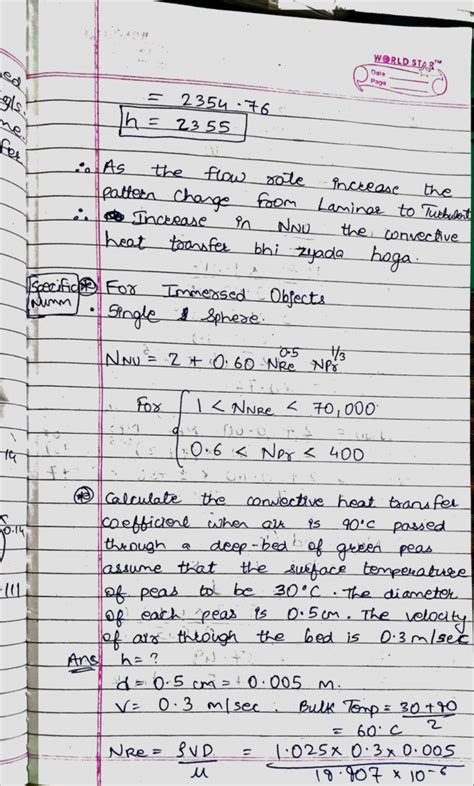 WORLD STAR™
Date
Page
= 2354.76
h = 2355
∴ As the flow rate increase the
pattern change from Laminar to Turbulent
∴ Increase in NNU the convective
heat transfer bhi zyada hoga.
Specific
Numm
For Immersed Objects
• Single Sphere.
NNU = 2 + 0.60 NRe^0.5 NPr^1/3
For { 1 < NNRe < 70,000
0.6 < NPr < 400
Calculate the convective heat transfer
coefficient when air is 90°C passed
through a deep-bed of green peas
assume that the surface temperature
of peas to be 30°C. The diameter
of each peas is 0.5cm. The velocity
of air through the bed is 0.3 m/sec
Ans h = ?
d = 0.5 cm = 0.005 m.
V = 0.3 m/sec. Bulk Temp = 30+90/2
= 60°C
NRe = ρVD/μ = 1.025 × 0.3 × 0.005 / 19.907 × 10^-6